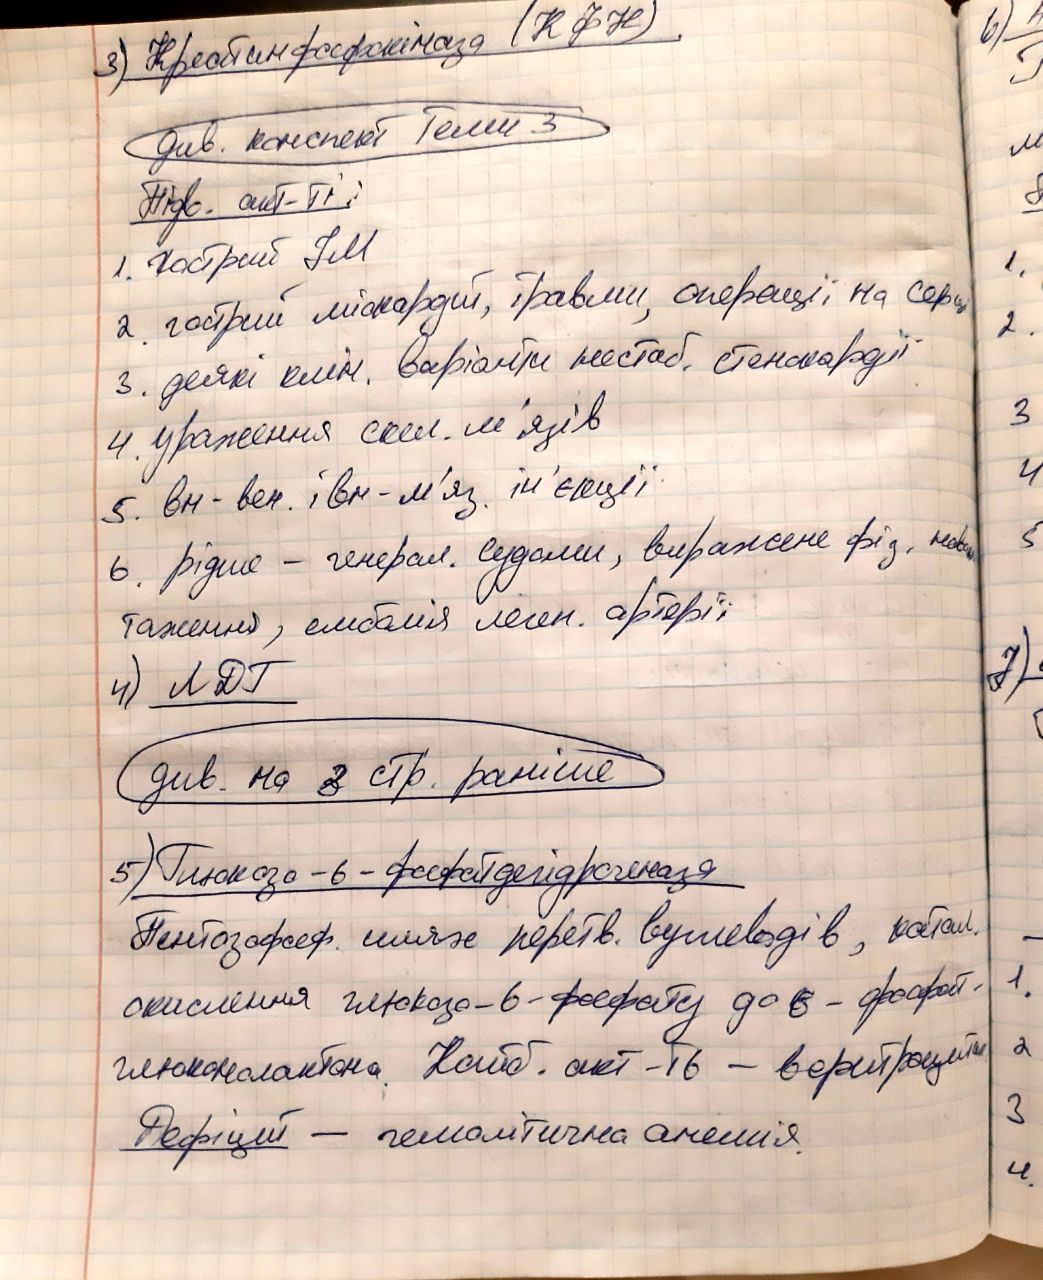 3) Креатинфосфокіназа (КФК).
див. конспект Теми 3
Підв. акт-ті:
1. гострий ІМ
2. гострий міокардит, травми, операції на серці
3. деякі клін. варіанти нестаб. стенокардії
4. ураження скел. м'язів
5. вн-вен. і вн-м'яз. ін'єкції
6. рідше - генерал. судоми, виражене фіз. наван
таження, емболія леген. артерії
4) ЛДГ
див. на 2 стр. раніше
5) Глюкозо-6-фосфатдегідрогеназа
Пентозофосф. шлях перетв. вуглеводів, катал.
окислення глюкозо-6-фосфату до 6-фосфат-
глюконолактона. Найб. акт-ть - в еритроцитах
Дефіцит - гемолітична анемія.
6)
1.
2.
3
4
5
7)
1.
2
3
4.